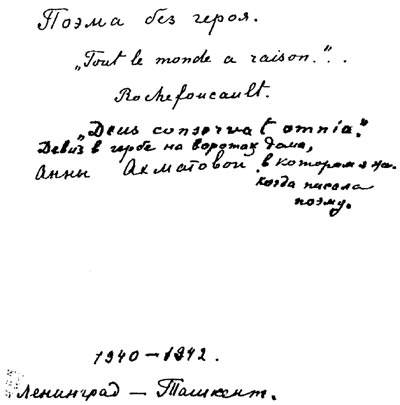 Поэма без героя.
„Tout le monde a raison.“..
Rochefoucault.
„Deus conservat omnia.“
Девиз в гербе на воротах дома,
Анны Ахматовой. в котором я жи.
когда писала
поэму.
1940—1942.
Ленинград — Ташкент.